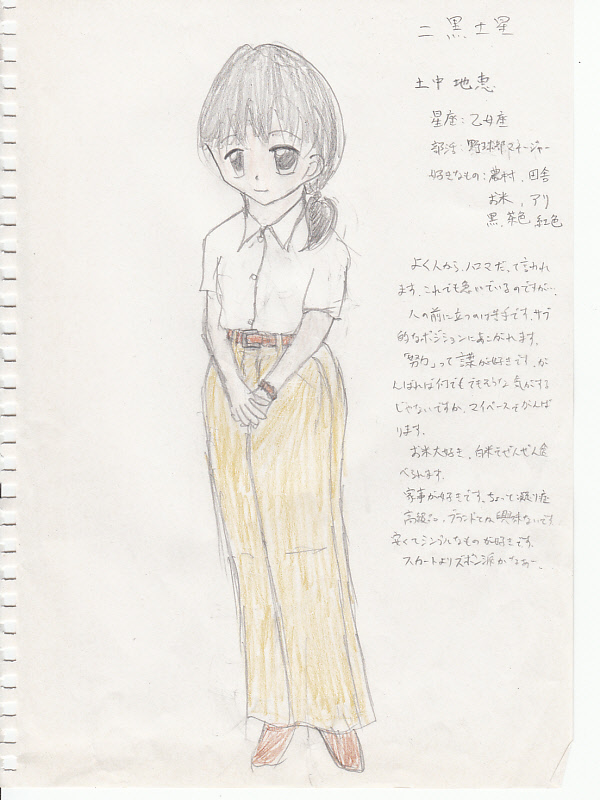 二黒土星
土中地恵
星座:乙女座
部活:野球部マネージャー
好きなもの:農村、田舎
お米、アリ
黒、茶色、紅色
よく人から、ノロマだ、って言われ
ます。これでも急いでいるのですが…。
人の前に立つのは苦手です。サブ
的なポジションにあこがれます。
「努力」って言葉が好きです。が
んばれば何でもできそうな気がする
じゃないですか。マイペースでがんば
ります。
お米大好き。白米でぜんぜん食
べられます。
家事が好きです。ちょっと凝り症
高級な、ブランドとか興味ないです
安くてシンプルなものが好きです。
スカートよりズボン派かなぁー。